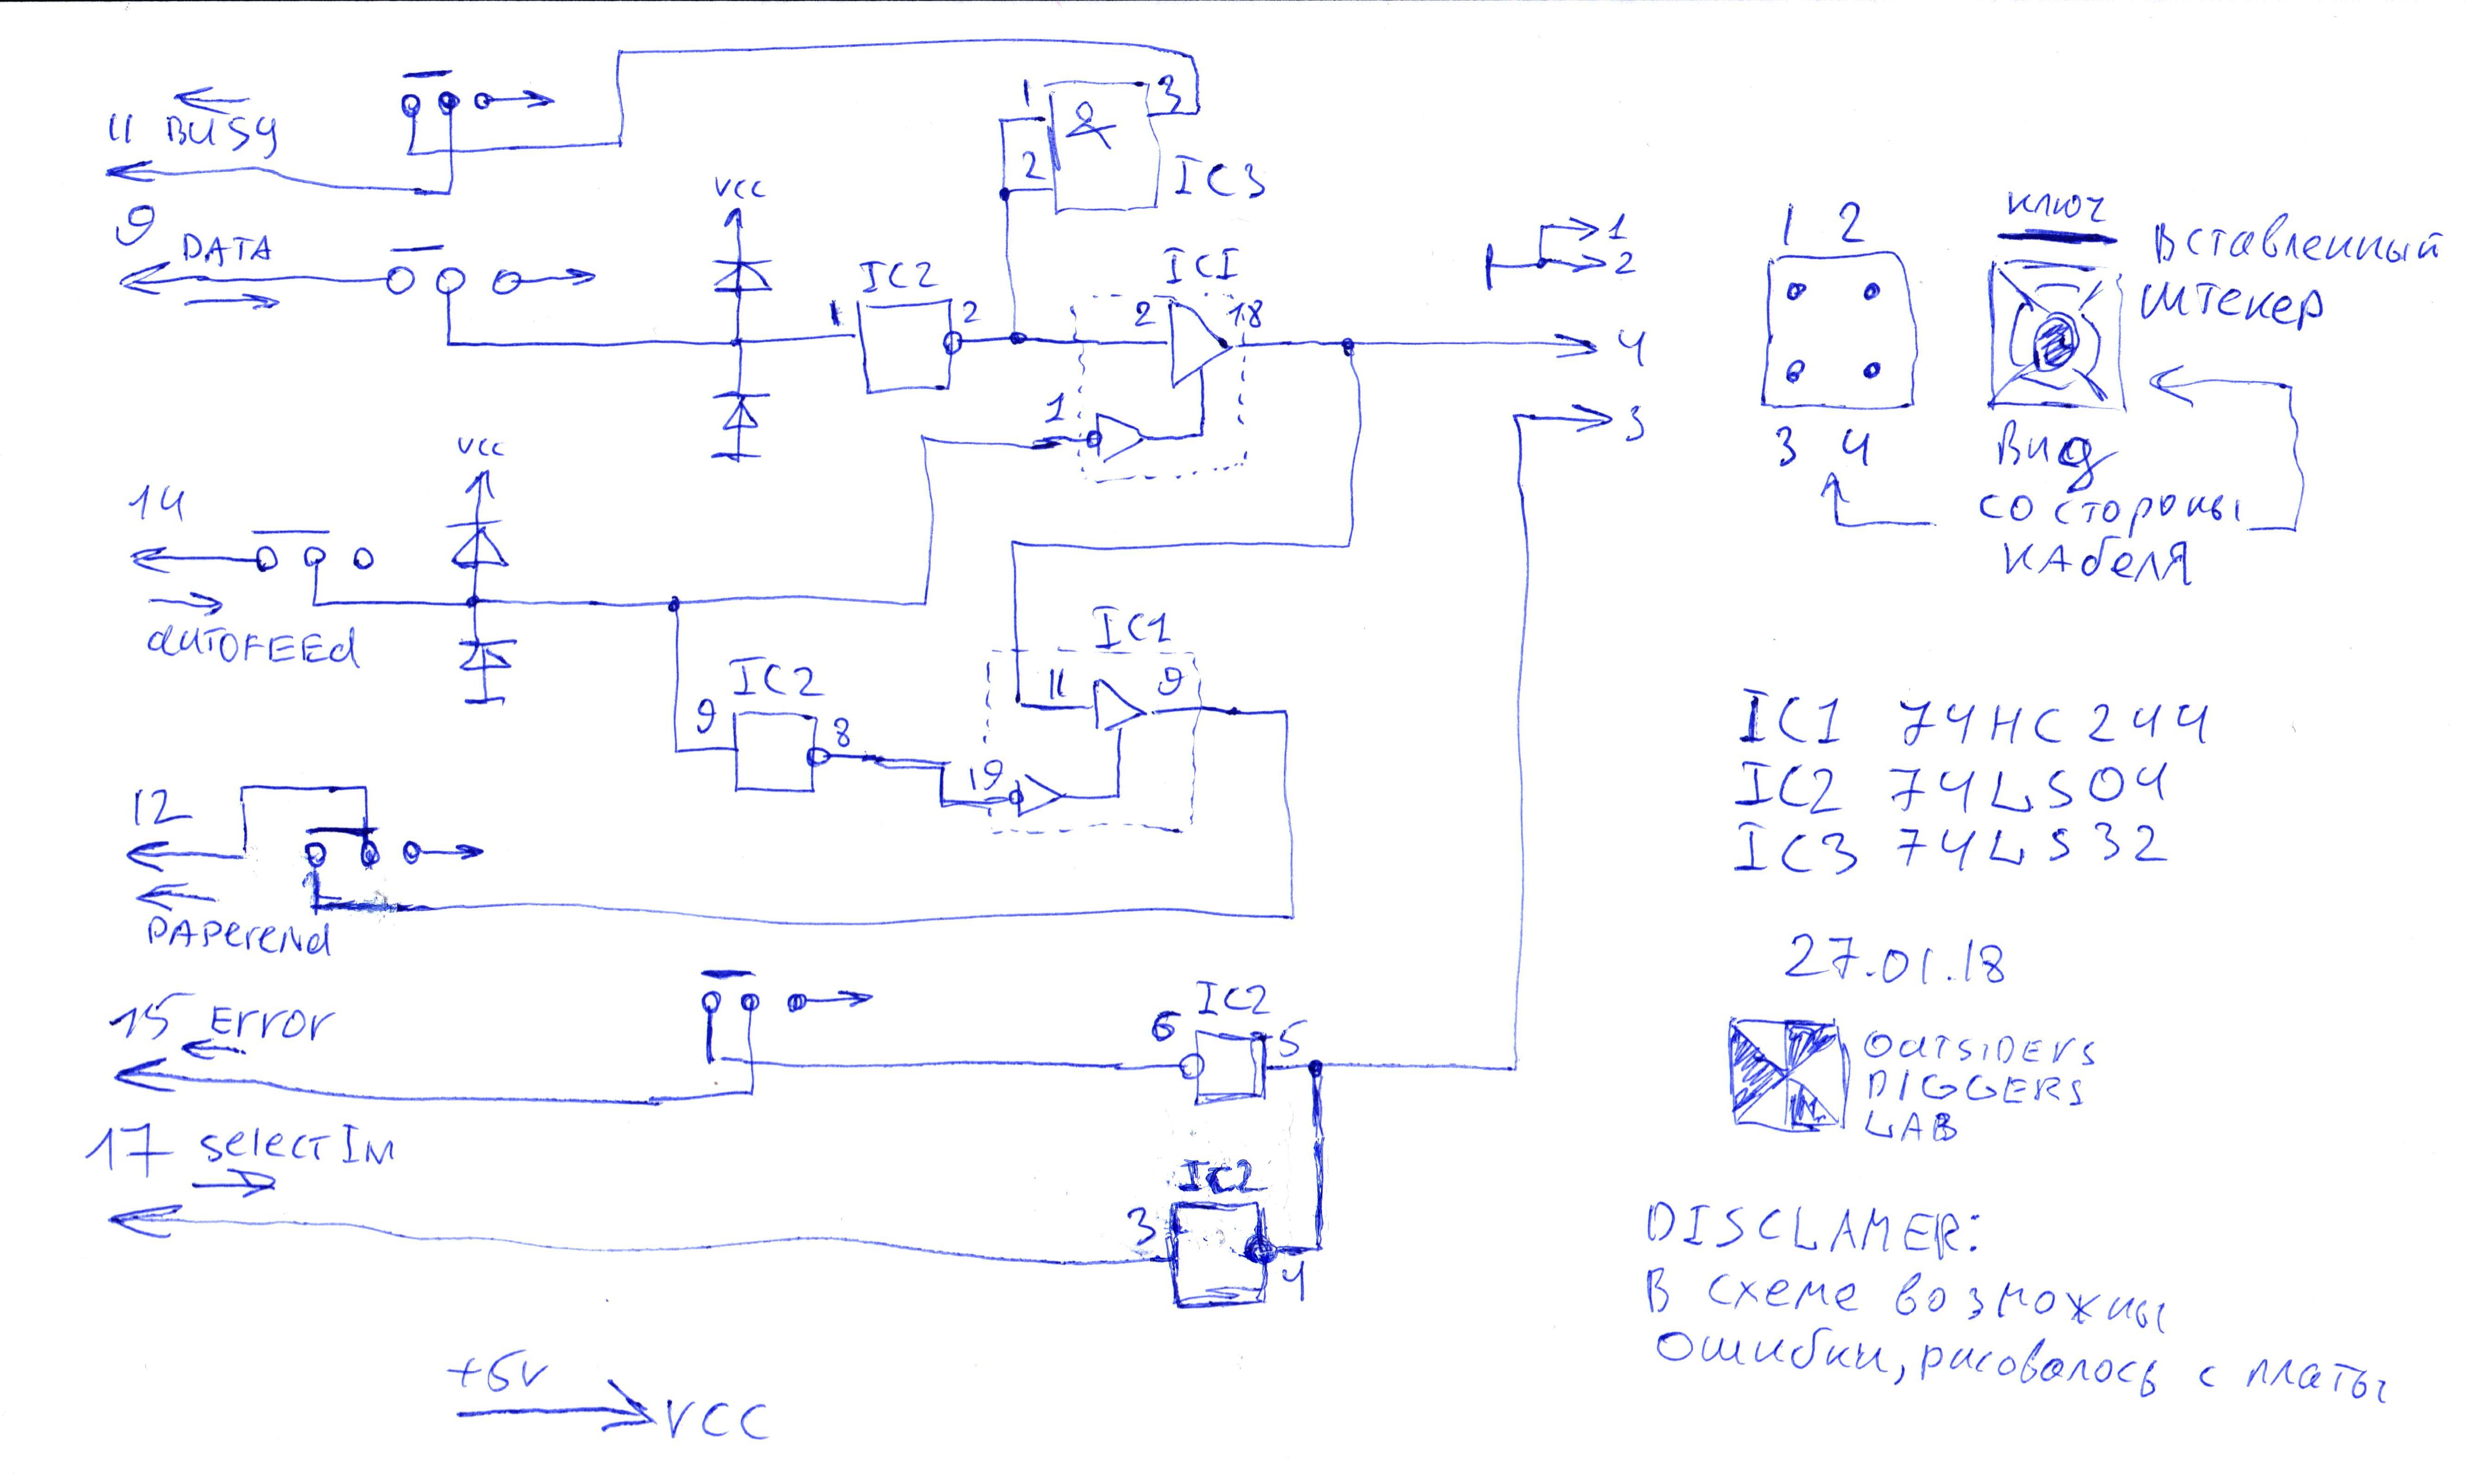 11 BUSY
1
3
&
2
IC3
9
DATA
VCC
1
IC2
2
IC1
2
18
1
1
2
4
3
1 2
3 4
ключ
Вставленный
штекер
Вид
со стороны
кабеля
14
AUTOFEEd
VCC
IC2
9
8
IC1
11
9
19
12
PAPerend
IC1 74HC244
IC2 74LS04
IC3 74LS32
27.01.18
15 Error
IC2
6
5
OUTSIDERS
DIGGERS
LAB
17 selectIn
IC2
3
4
DISCLAMER:
В схеме возможны
ошибки, рисовалось с платы
+5V
VCC